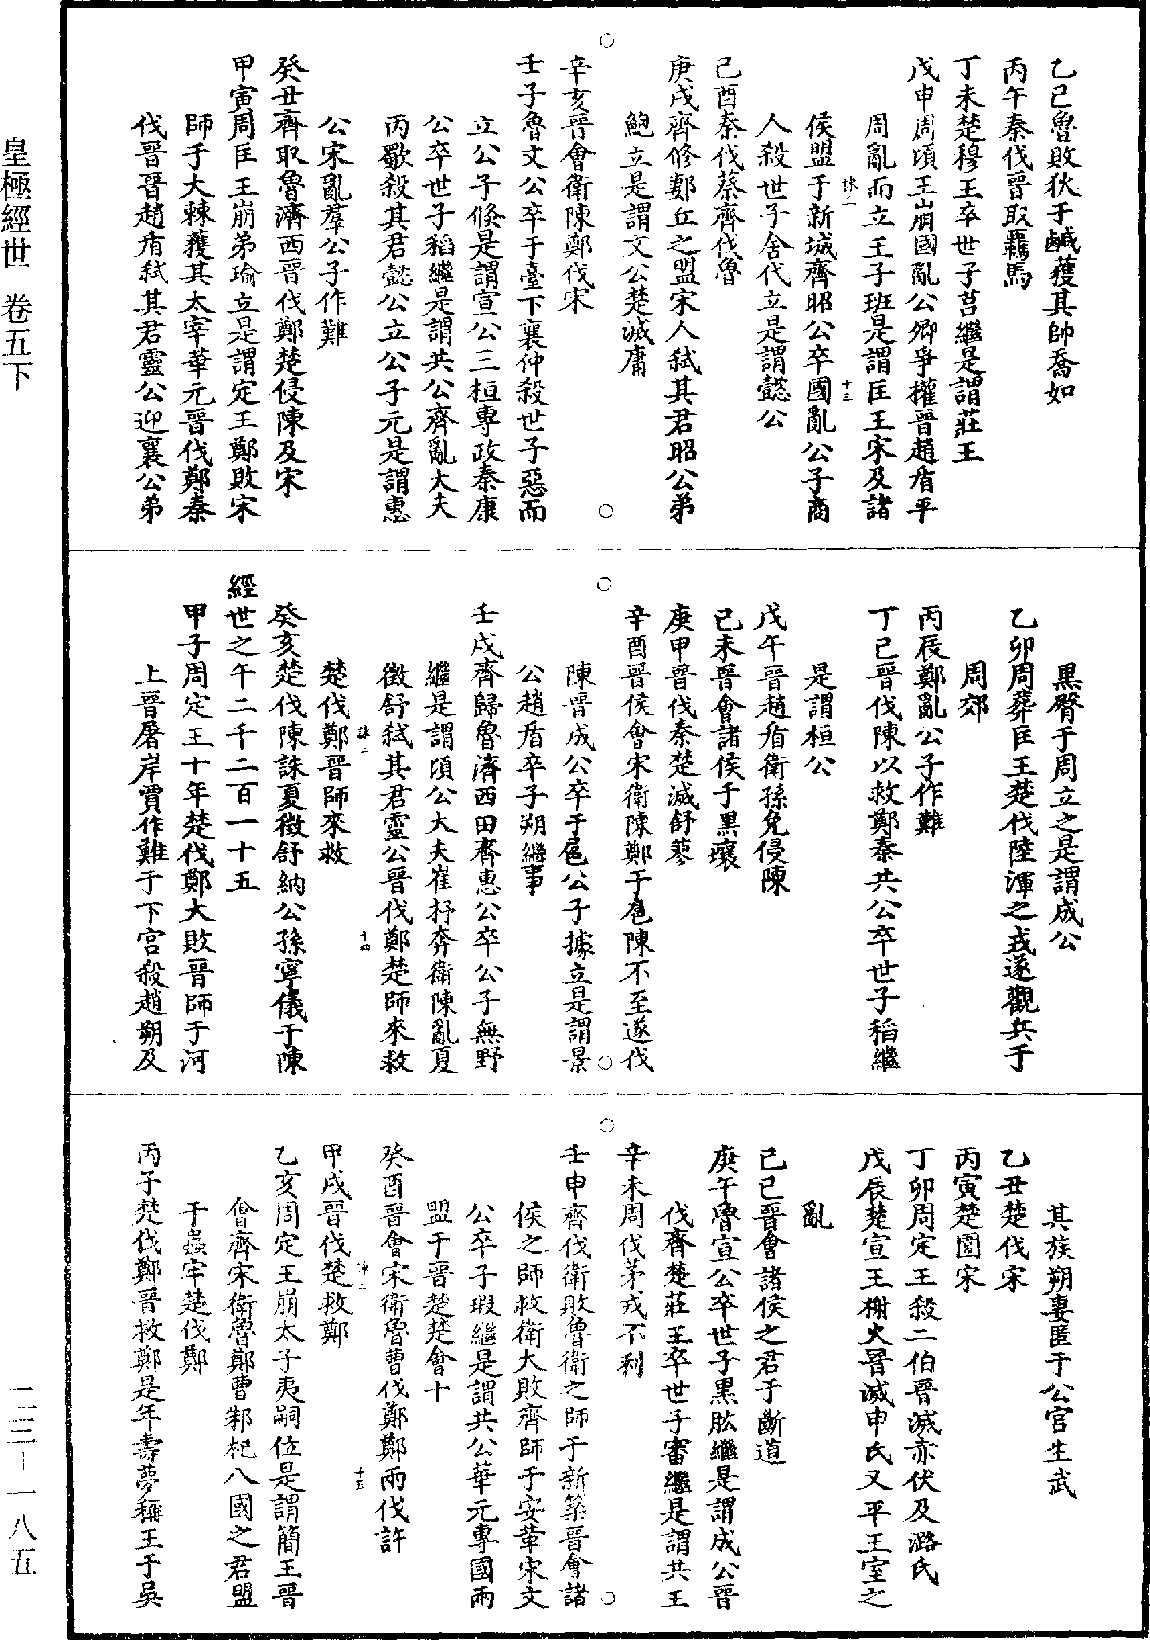 皇極經世 卷五下
乙巳魯敗狄于鹹獲其帥喬如
丙午秦伐晉取羈馬
丁未楚穆王卒世子莒繼是謂莊王
戊申周頃王崩國亂公卿爭權晉趙盾平
周亂而立王子班是謂匡王宋及諸
侯盟于新城齊昭公卒國亂公子商
人殺世子舍代立是謂懿公
己酉秦伐蔡齊伐魯
庚戌齊修鄭丘之盟宋人弒其君昭公弟
鮑立是謂文公楚滅庸
辛亥晉會衛陳鄭伐宋
壬子魯文公卒于臺下襄仲殺世子惡而
立公子倏是謂宣公三桓專政秦康
公卒世子稻繼是謂共公齊亂大夫
丙歜殺其君懿公立公子元是謂惠
公宋亂羣公子作難
癸丑齊取魯濟西晉伐鄭楚侵陳及宋
甲寅周匡王崩弟瑜立是謂定王鄭敗宋
師于大棘獲其太宰華元晉伐鄭秦
伐晉晉趙盾弒其君靈公迎襄公弟
黑臀于周立之是謂成公
乙卯周葬匡王楚伐陸渾之戎遂觀兵于
周郊
丙辰鄭亂公子作難
丁巳晉伐陳以救鄭秦共公卒世子稻繼
是謂桓公
戊午晉趙盾衛孫免侵陳
己未晉會諸侯于黑壤
庚申晉伐秦楚滅舒蓼
辛酉晉侯會宋衛陳鄭于扈陳不至遂伐
陳晉成公卒于扈公子據立是謂景
公趙盾卒子朔繼事
壬戌齊歸魯濟西田齊惠公卒公子無野
繼是謂頃公大夫崔抒奔衛陳亂夏
徵舒弒其君靈公晉伐鄭楚師來救
楚伐鄭晉師來救
癸亥楚伐陳誅夏徵舒納公孫寧儀于陳
經世之午二千二百一十五
甲子周定王十年楚伐鄭大敗晉師于河
上晉屠岸賈作難于下宮殺趙朔及
其族朔妻匿于公宮生武
乙丑楚伐宋
丙寅楚圍宋
丁卯周定王殺二伯晉滅赤伏及潞氏
戊辰楚宣王榭火晉滅申氏又平王室之
亂
己巳晉會諸侯之君于斷道
庚午魯宣公卒世子黑肱繼是謂成公晉
伐齊楚莊王卒世子審繼是謂共王
辛未周伐茅戎不利
壬申齊伐衛敗魯衛之師于新築晉會諸
侯之師救衛大敗齊師于安革宋文
公卒子瑕繼是謂共公華元專國兩
盟于晉楚楚會十
癸酉晉會宋衛魯曹伐鄭鄭兩伐許
甲戌晉伐楚救鄭
乙亥周定王崩太子夷嗣位是謂簡王晉
會齊宋衛魯鄭曹邾杞八國之君盟
于蟲牢楚伐鄭
丙子楚伐鄭晉救鄭是年壽夢稱王于吳
二三－一八五